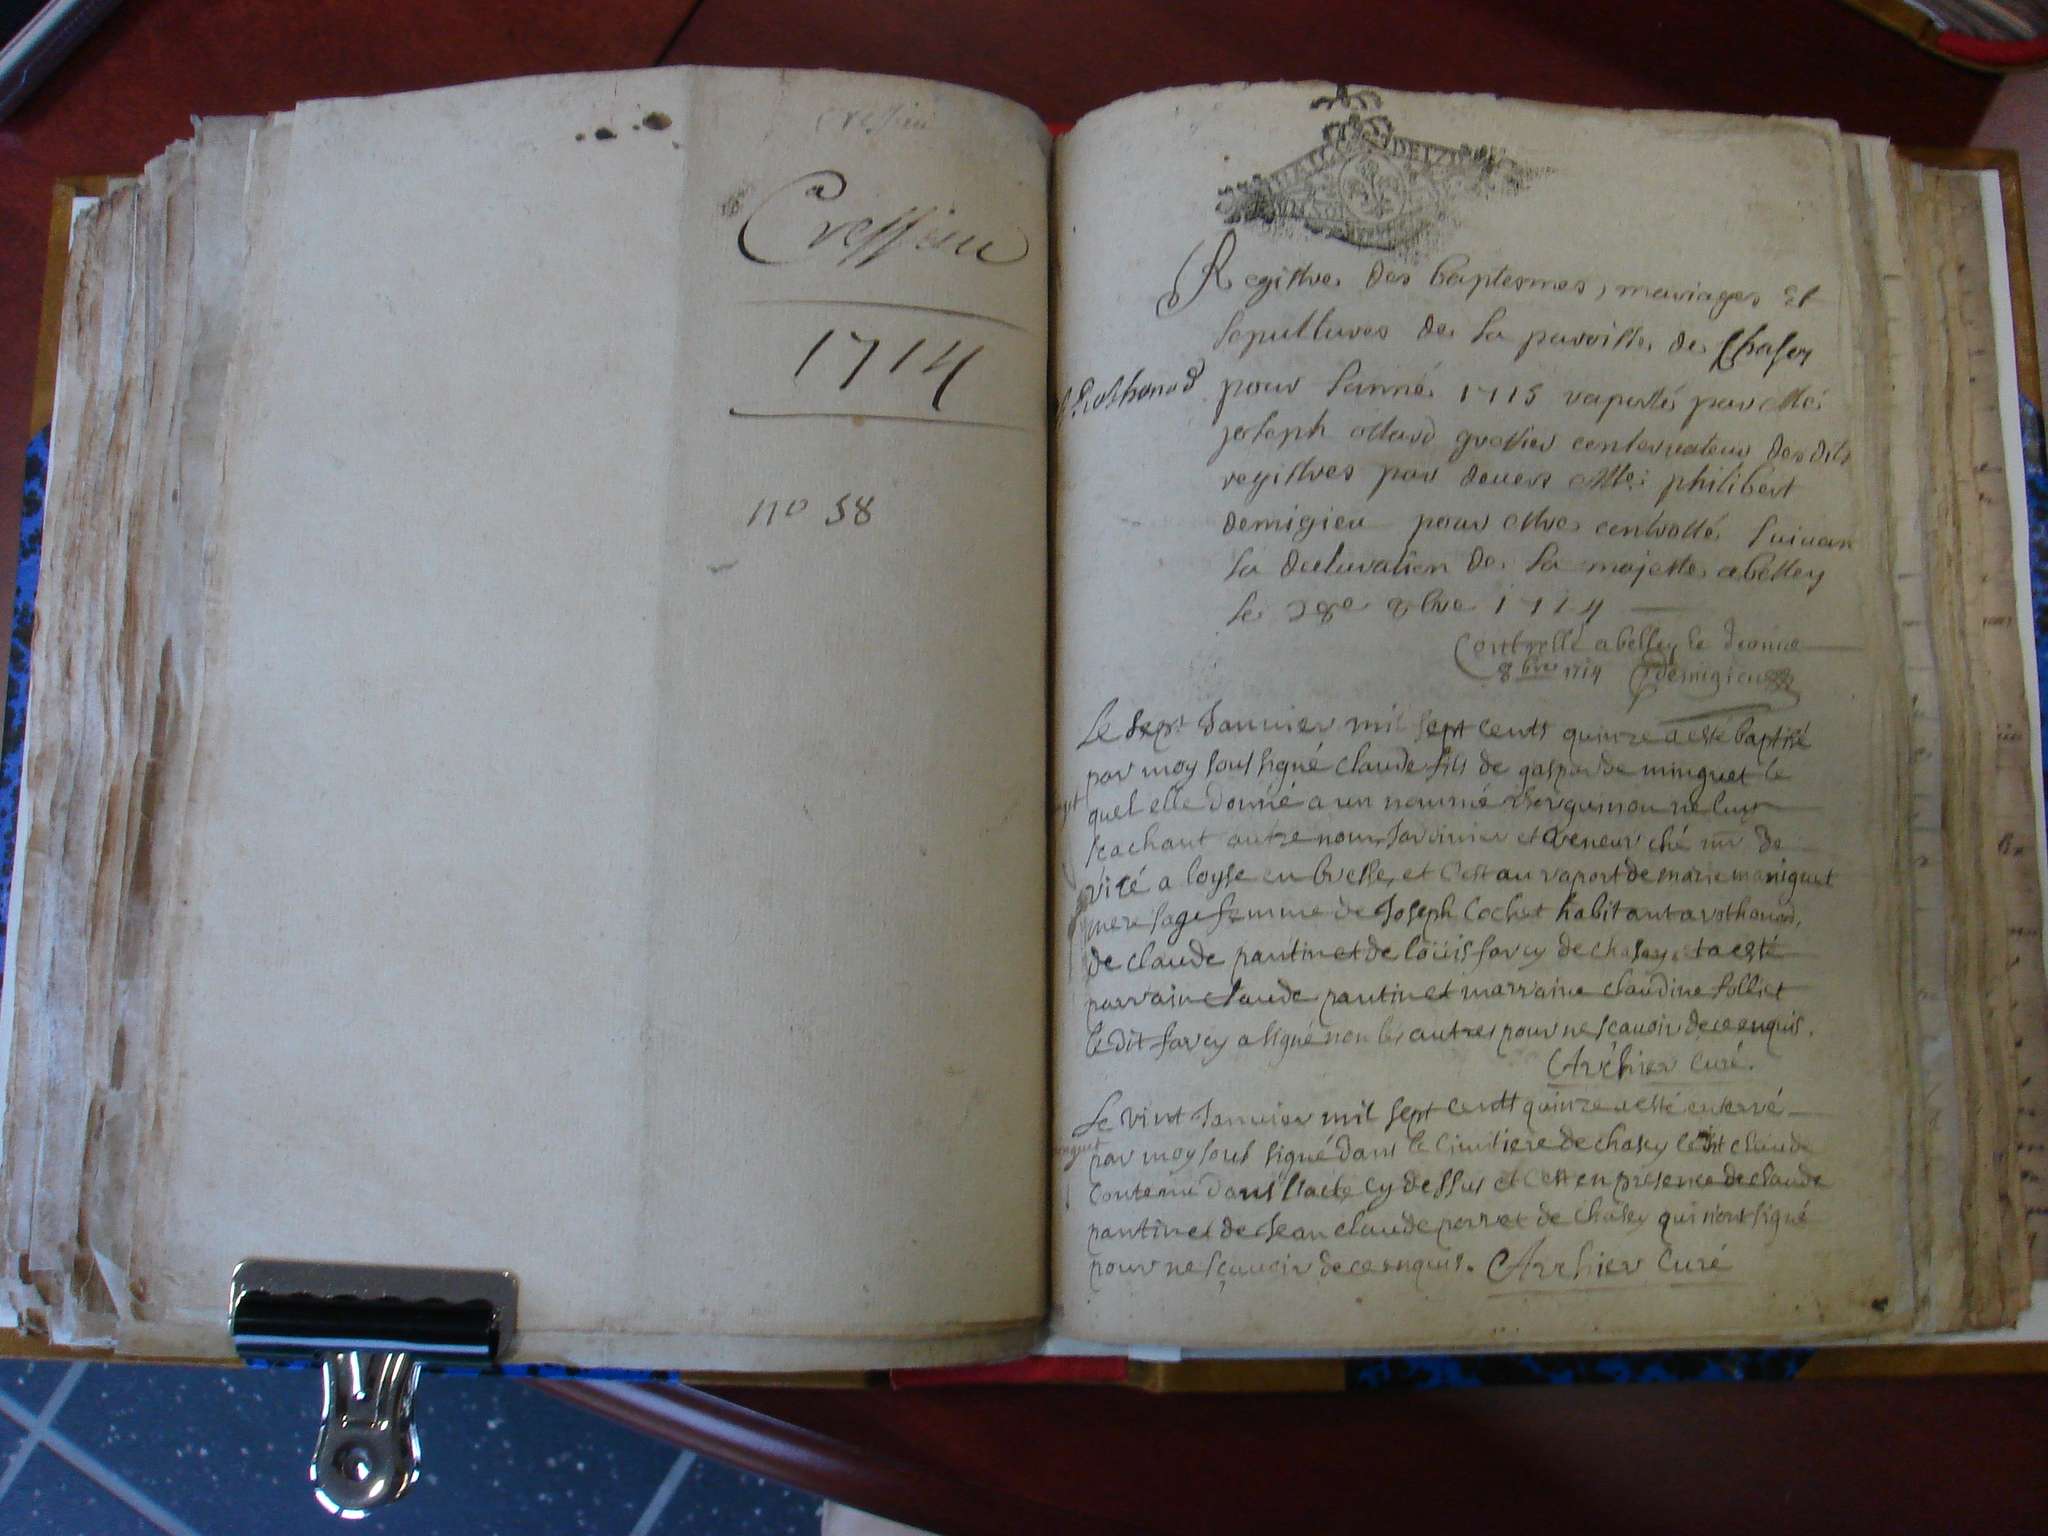 Cressieu
Cressieu
1714
no 58
Registre des baptesmes, mariages et
sepultures de la paroisse de Chasey
pour lanné 1715 raporté par Me
& Rothonod
joseph ollard greffier conservateur desdits
registres par devers Me philibert
demigieu pour estre controllé suivan
la declaration de sa majesté a belley
le 28e 8bre 1714
Controllé a belley le
8bre 1714 demigieu
Le sept Janvier mil sept cents quinze a esté baptisé
par moy sous signé claude fils de gasparde minguet le
quel elle donné a un nommé ne luy
scachant autre nom Jardinier et veneur ché mr de
viré a loyse en bresse, et c'est au raport de marie maniguet
mere sage femme de Joseph Cochet habitant a rothonod,
de claude pantin et de loüis farcy de chasey, et a esté
parrain claude pantin et marraine claudine folliet
le dit farcy a signé non les autres pour ne sçavoir de ce enquis.
Archier Curé.
Le vint Janvier mil sept cents quinze a esté enterré
par moy sous signé dans le cimitiere de chasey ledit claude
minguet
Contenu dans l'acte cy dessus et c'est en presence de claude
pantin et de Jean claude perret de chasey qui n'ont signé
pour ne sçavoir de ce enquis. Archier Curé